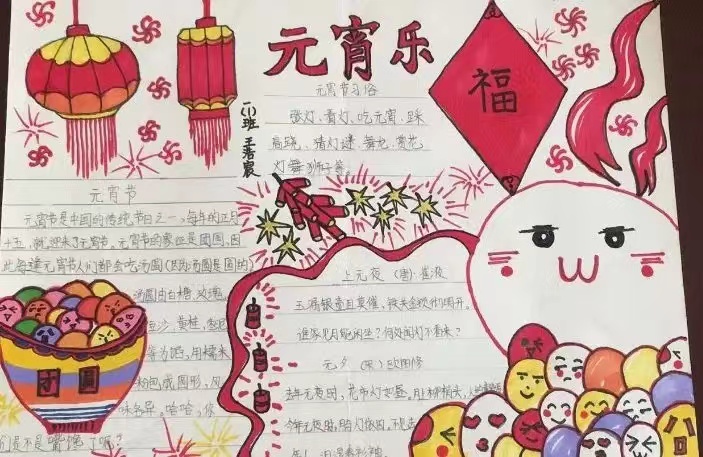 元宵乐
元宵节习俗
放灯、赏灯、吃元宵、踩
高跷、猜灯谜、舞龙、赏花
灯舞狮子等。
福
一(1)班
元宵节
元宵节是中国的传统节日之一,每年的正月
十五,就迎来了元宵节。元宵节的象征是团圆,因
此每逢元宵节人们都会吃汤圆(因为汤圆是圆的)
汤圆由白糖、玫瑰、
豆沙、黄桂、
等为馅,用糯米
粉包成圆形,风
味各异。哈哈,你
们是不是嘴馋了呢?
团圆
上元夜(唐)崔液
玉漏银壶且莫催,铁关金锁彻明开。
谁家见月能闲坐?何处闻灯不看来?
元夕(宋)欧阳修
去年元夜时,花市灯如昼。月上柳梢头,人约黄昏后
今年元夜时,月与灯依旧。不见去
年人,泪湿春衫袖。